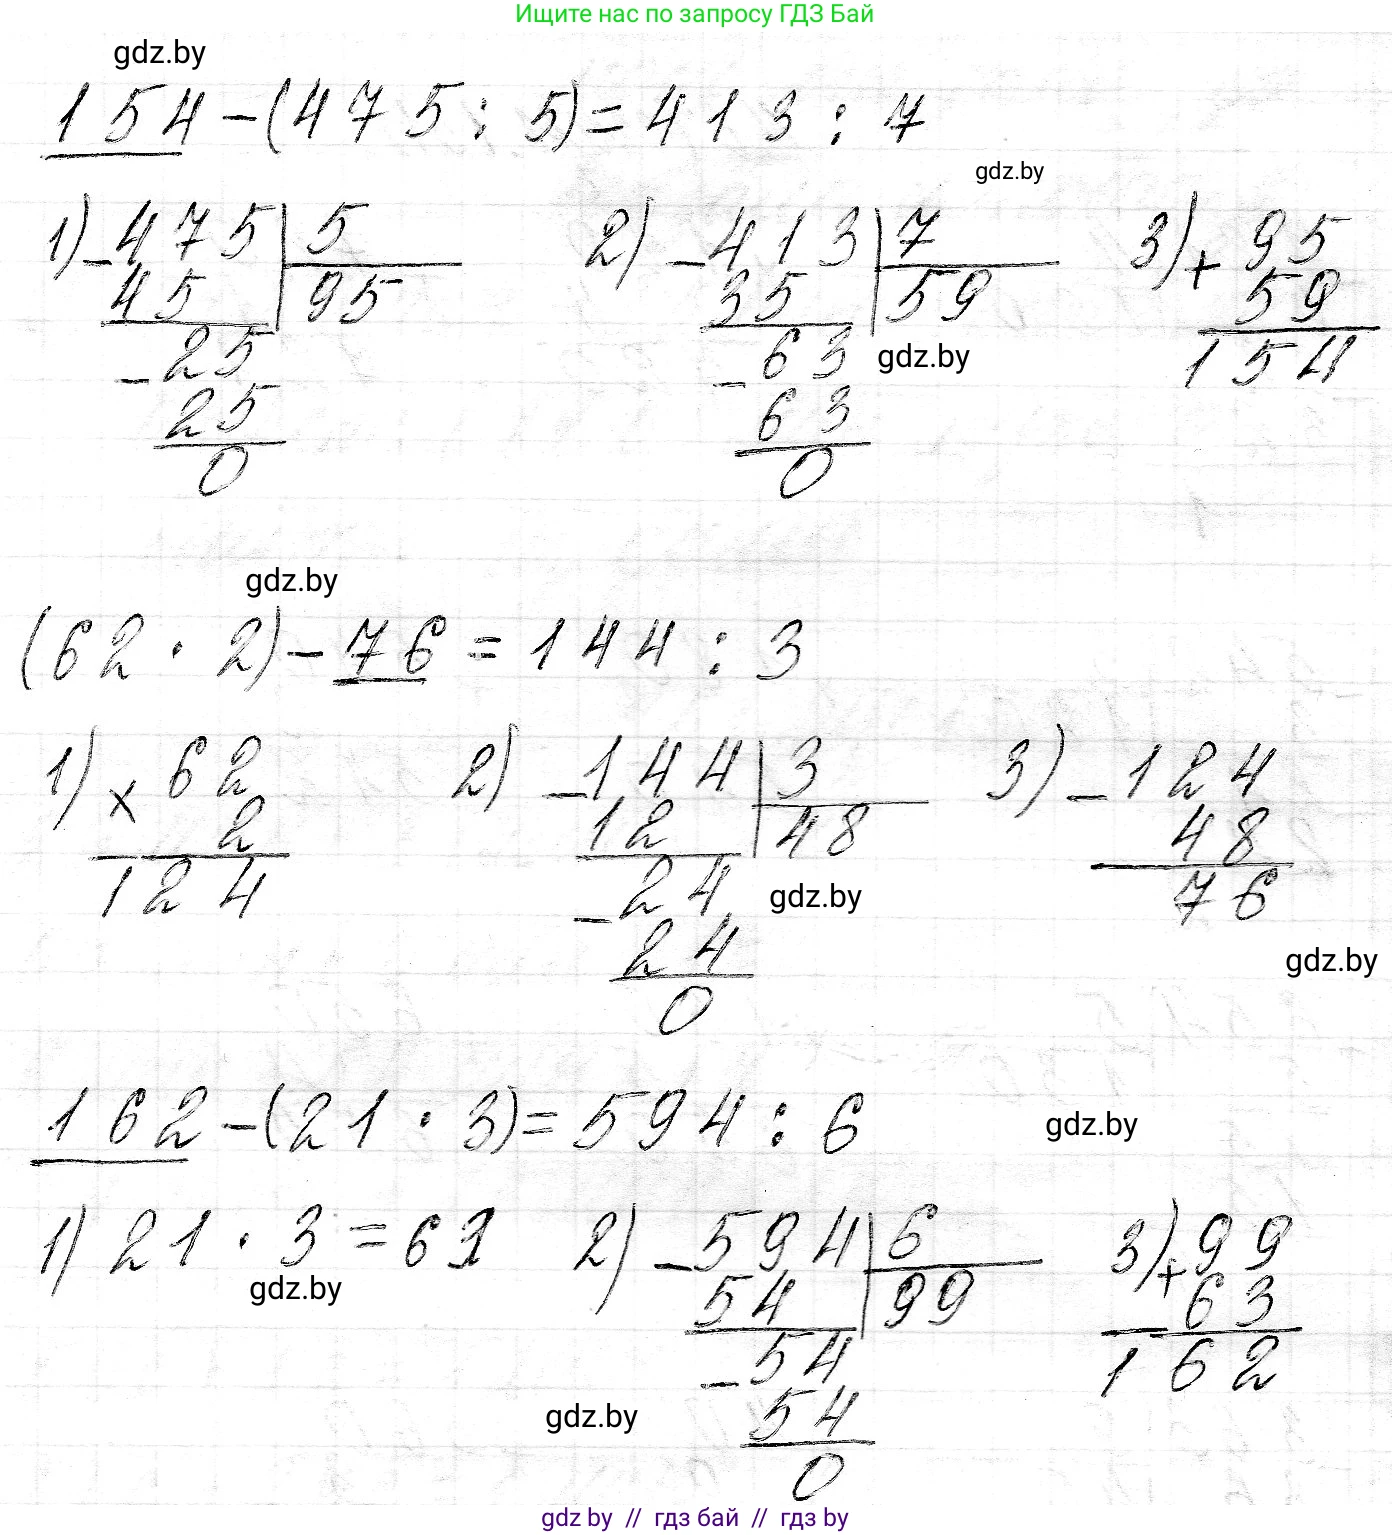 Ищите нас по запросу ГДЗ Бай
gdz.by
154-(475:5)=413:7
gdz.by
1) -475|5
45 95
-25
25
0
2) -413|7
35 59
gdz.by
-63
63
0
3) + 95
59
154
gdz.by
(62·2)-76=144:3
1) x 62
2
124
2) -144|3
12 48
-24
gdz.by
24
0
3) -124
48
76
gdz.by
162-(21·3)=594:6
gdz.by
1) 21·3=63
gdz.by
2) -594|6
54 99
-54
54
0
gdz.by
3) +99
63
162
gdz.by // гдз бай // гдз by